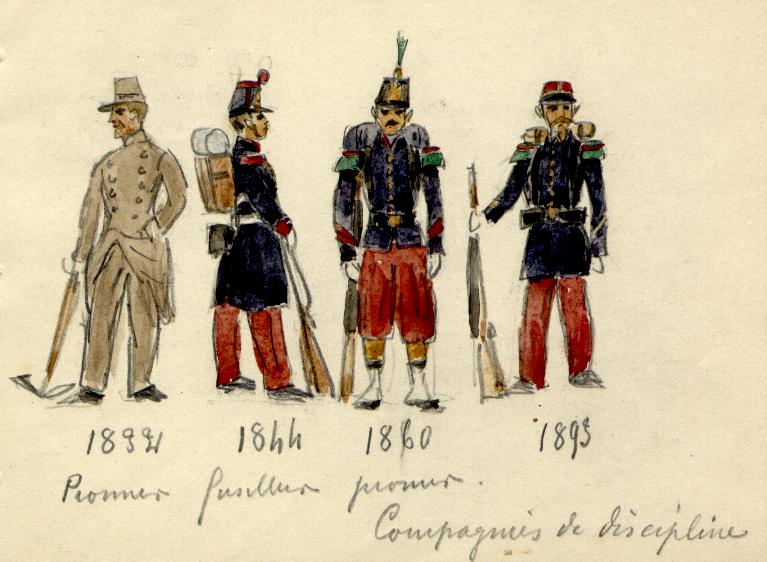 1844 1860 1893
Pionnier fusilier pionnier.
Compagnies de discipline